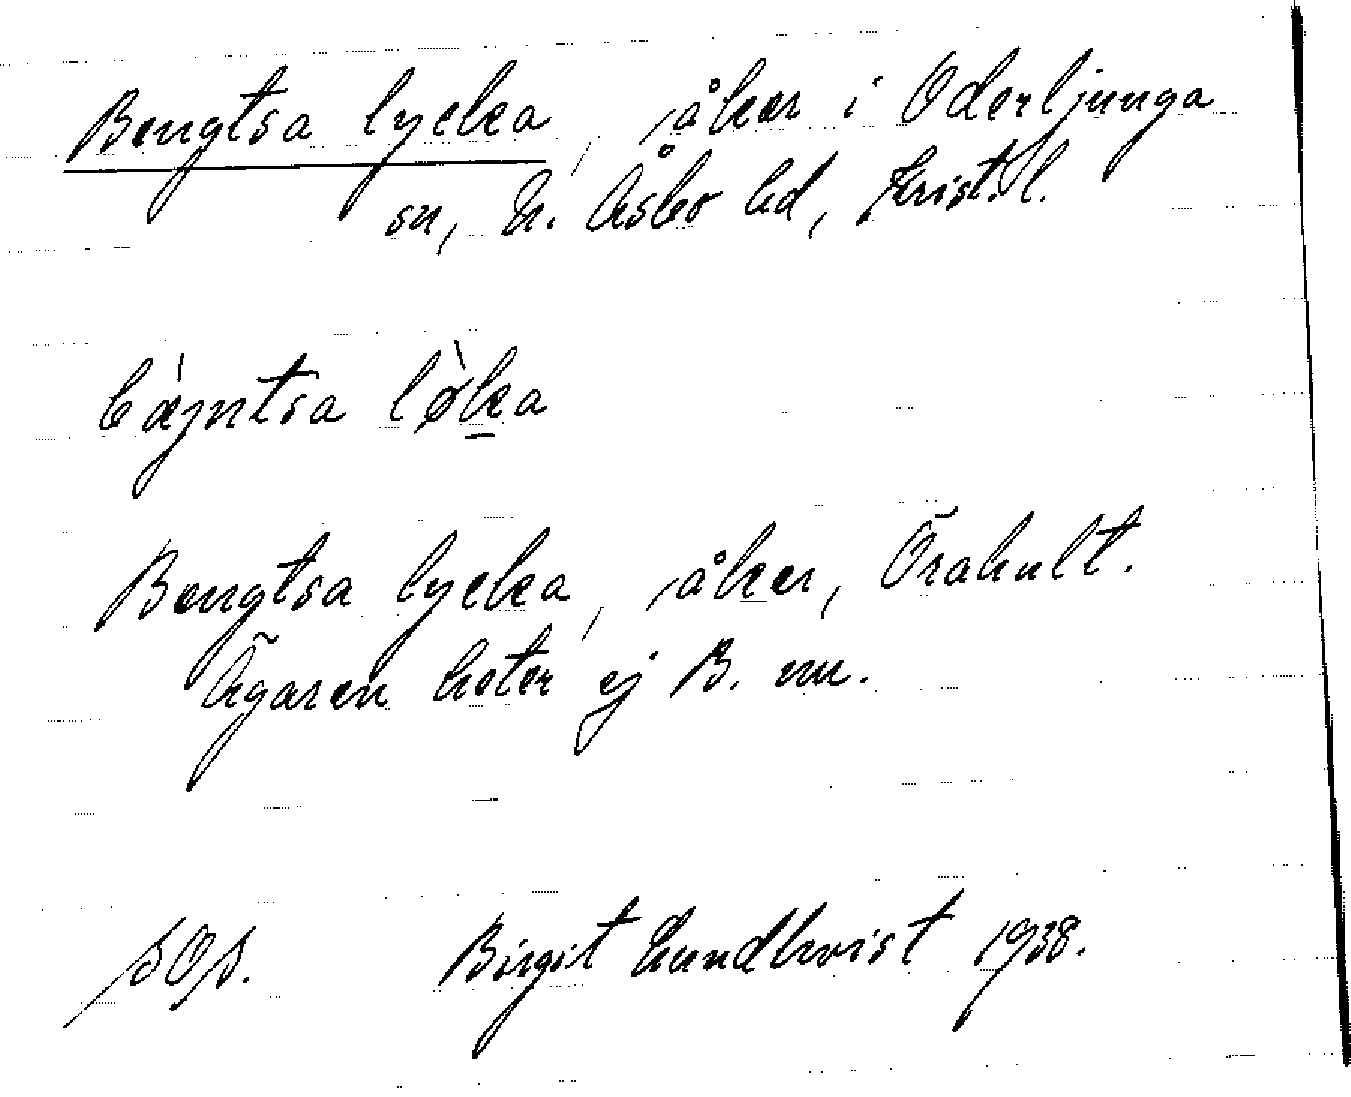 Bengtsa lycka, åker i Oderljunga
sn, N. Åsbo hd, Krist. l.
bæ̀ŋntsa lø̀ka
Bengtsa lycka, åker, Örahult.
Ägaren heter ej B. nu.
Birgit Lundkvist 1938.